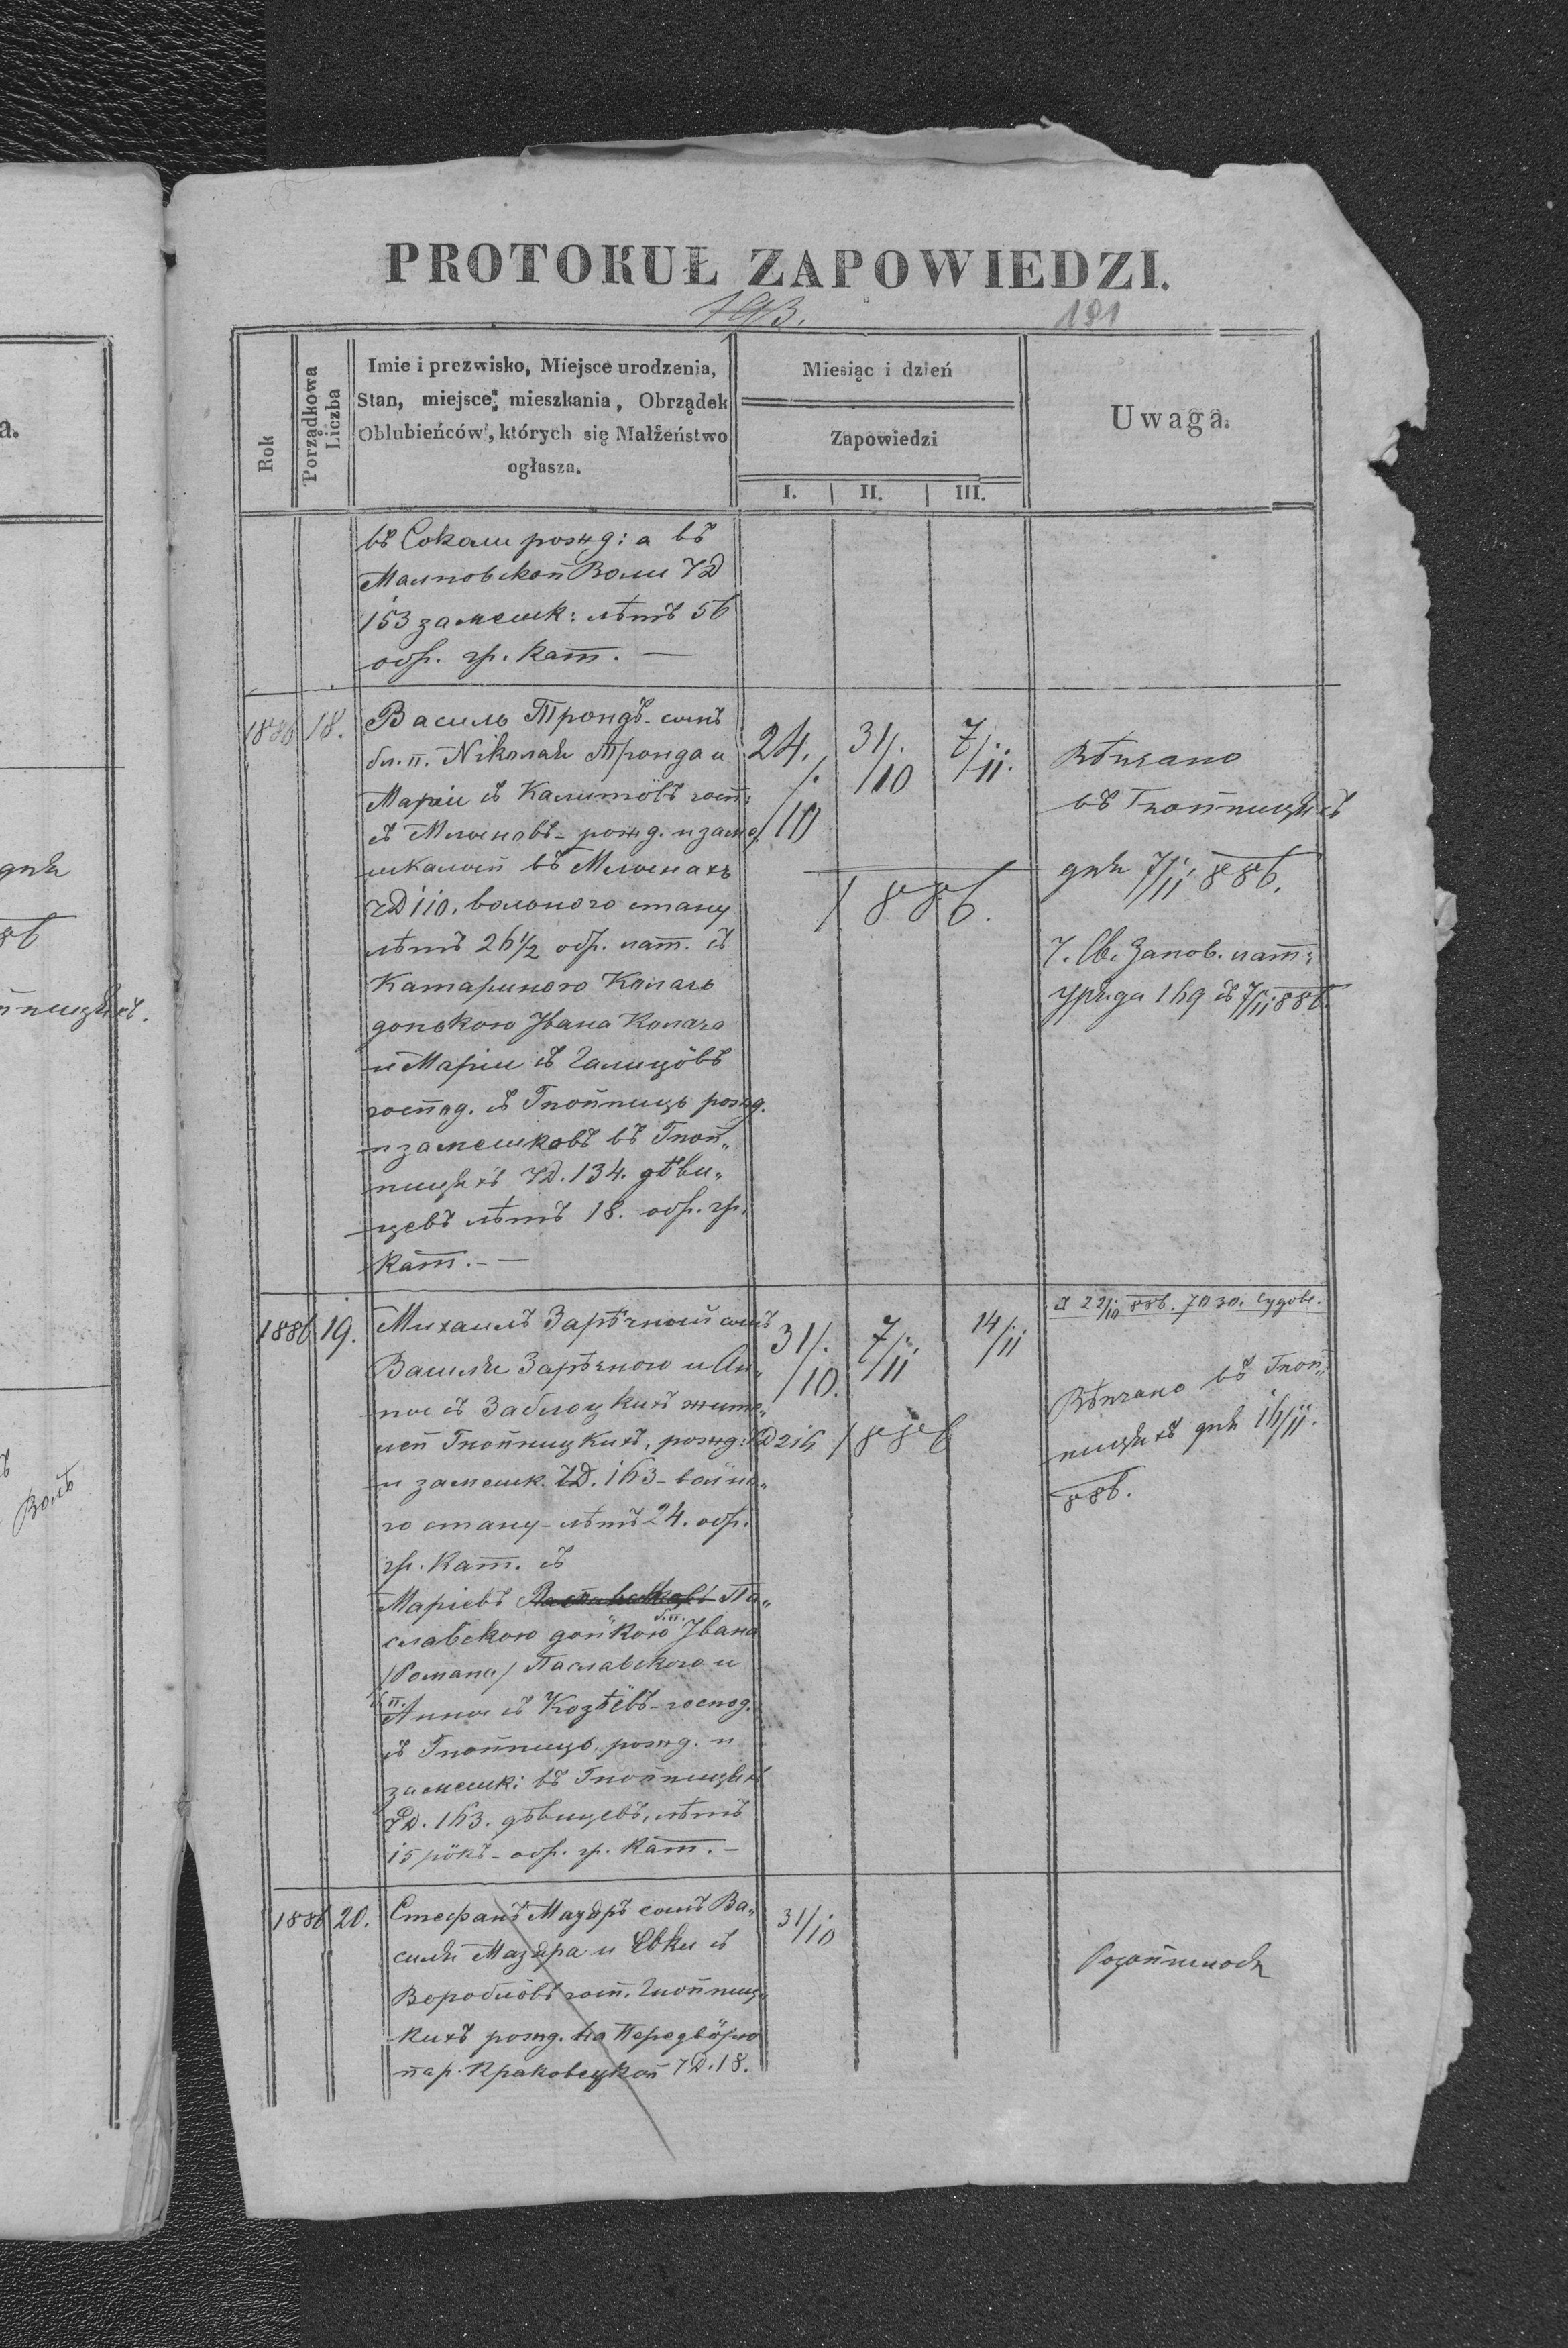 PROTOKUŁ ZAPOWIEDZI.
193.
191
Rok
Porządkowa Liczba
Imie i prezwisko, Miejsce urodzenia,
Stan, miejsce mieszkania, Obrządek
Oblubieńców, których się Małżeństwo
ogłasza.
Miesiąc i dzień
Zapowiedzi
I. II. III.
Uwaga.
въ Сокали рожд: а въ
Малновской Воли ЧД
153 замешк: лѣтъ 56
обр. гр. кат. —
1886 18.
Василь Трондъ - сынъ
бл. п. Николая Тронда и
Маріи съ
рожд. и заме
шкалый въ
ЧД 110. вольного стану
лѣтъ 26½ обр. лат. съ
Катариною Колачъ
донькою Ивана Колача
и Маріи съ Галицôвъ
господ. съ Гнойницъ рожд.
и замешковъ въ Гной„
ницяхъ ЧД. 134. дѣви„
цевъ лѣтъ 18. обр. гр.
кат. —
24./10
31/10
7/11.
1886.
Вѣнчано
въ Гнойницяхъ
дня 7/11 886.
Ч. Св. Запов. лат:
уряда 169 съ 7/11 886
1886 19.
Михаилъ Зарѣчный сынъ
Василія Зарѣчного и Ан„
ны съ Заблоцкихъ жите„
лей Гнойницкихъ, рожд: ЧД 216
и замешк. ЧД. 163 - вольно„
го стану - лѣтъ 24. обр.
гр. кат. съ
Маріевъ Па„
славскою донькою б.п. Ивана
/Романа/ Паславского и
б.п. Анны съ Козѣёвъ - господ.
съ Гнойницъ рожд. и
замешк: въ Гнойницяхъ
ЧД. 163. дѣвицевъ, лѣтъ
15 рôкъ - обр. гр. кат. —
31/10.
7/11
14/11
1886
А 22/10 886. Ч 1030. Судове.
Вѣнчано въ Гной„
ницяхъ дня 16/11.
886.
1886 20.
Стефанъ Мазяръ сынъ Ва„
силія Мазяра и Евки съ
Воробльôвъ госп. Гнойниц„
кихъ рожд. на Передвôрю
пар. Краковецкой ЧД. 18.
31/10
Розойшлося
дня
Волѣ